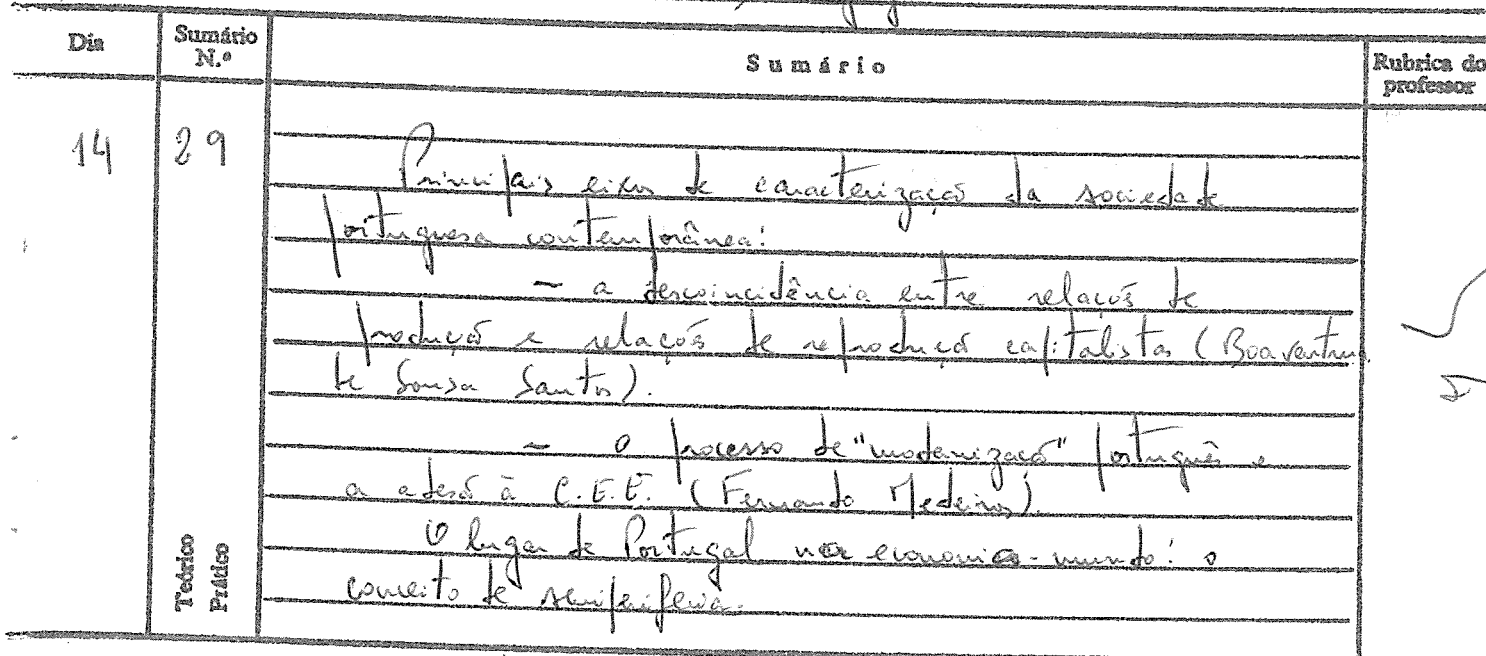 Dia
Sumário N.º
Sumário
Rubrica do professor
14
29
Principais eixos de caracterização da sociedade
portuguesa contemporânea:
- a descoincidência entre relações de
produção e relações de reprodução capitalistas (Boaventura
de Sousa Santos).
- o processo de "modernização" português e
a adesão à C.E.E. (Fernando Medeiros).
O lugar de Portugal na economia-mundo: o
conceito de semiperiferia.
Teórico
Prático